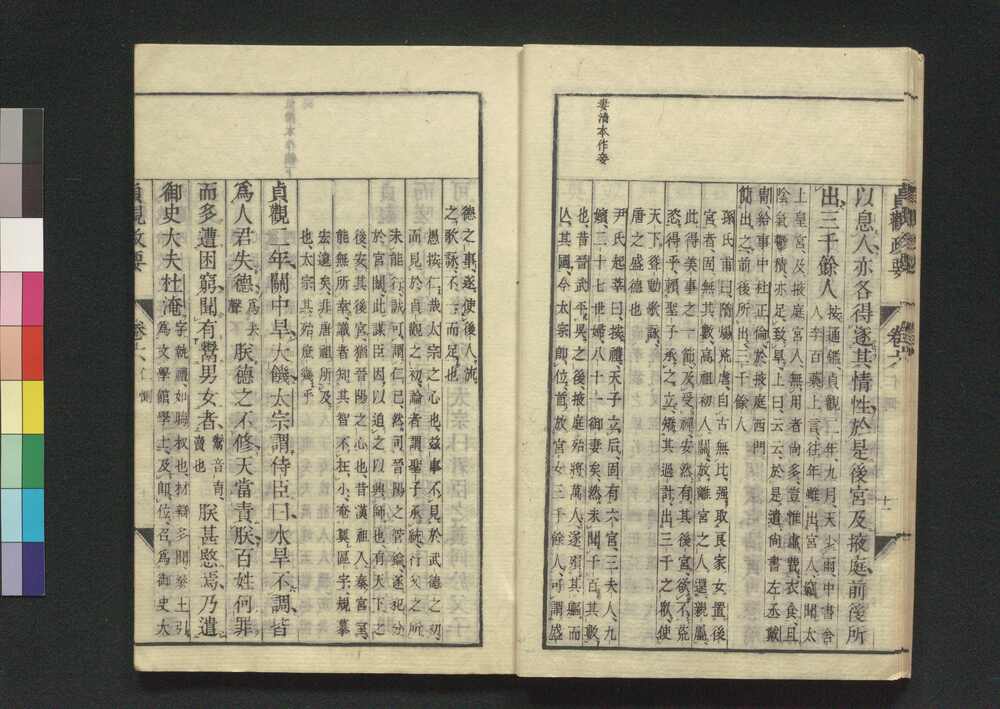 妾諸本作妾
貞觀政要 卷六 仁惻 十一
以息人亦各得遂其情性於是後宮及掖庭前後所
出三千餘人 按通鑑貞觀二年九月天少雨中書舍
人李百藥上言往年雖出宮人竊聞太
上皇宮及掖庭宮人無用者尚多豈惟虛費衣食且
陰氣鬱積亦足致旱上曰云云於是遣尚書左丞戴
冑給事中杜正倫於掖庭西門
簡出之前後所出三千餘人
孫氏甫曰隋煬荒虐自古無比强取良家女置後
宮者固無其數高祖初入關放離宮之人還親屬
此得美事之一節及受禪安然有其後宮欲不荒
恣得乎賴聖子承之立矯其過計出三千之衆使
天下聳動歌詠
唐之盛德也
尹氏起莘曰按禮天子立后固有六宮三夫人九
嬪二十七世婦八十一御妻矣然未聞千百其數
也昔晉武平吳之後掖庭殆將萬人遂殞其軀而
亾其國今太宗卽位首放宮女三千餘人可謂盛
德之事遂使後人流
之歌詠不一而足也
愚按仁哉太宗之心也兹事不見於武德之初
而見於貞觀之初論者謂聖子承統行父之所
未能行誠可謂仁已然司晉陽之管鑰遂犯分
於宮闈此謀臣因以迫之以興師也有天下之
後安其後宮猶晉陽之心也昔漢祖入秦宮室
能無所幸識者知其智不在小奄奠區宇規摹
宏遠矣非唐祖所及
也太宗其殆庶幾乎
貞觀二年關中旱大饑太宗謂侍臣曰水旱不調皆
爲人君失德 爲去聲 朕德之不修天當責朕百姓何罪
而多遭困窮聞有鬻男女者 鬻音育賣也 朕甚愍焉乃遣
御史大夫杜淹 字執禮如晦叔也材辯多聞秦王引
爲文學館學士及卽位召爲御史大
貞觀政要 卷六 仁惻